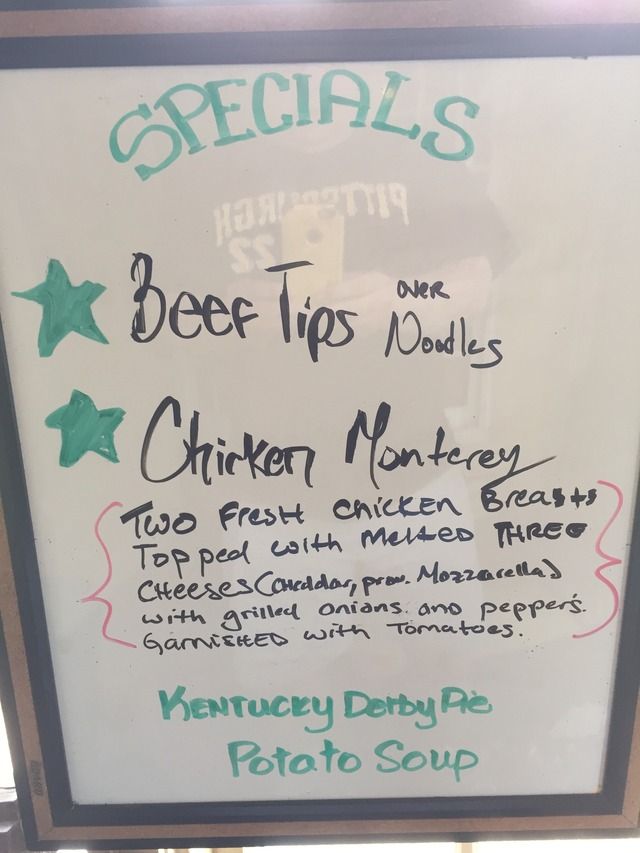 SPECIALS
PITTSBURGH
22
Beef Tips over Noodles
Chicken Monterey
Two Fresh chicken Breasts
Topped with Melted THREE
CHeeses (cheddar, prov. Mozzarella)
with grilled onions. and peppers.
GarnisHED with Tomatoes.
KENTUCKY Derby Pie
Potato Soup